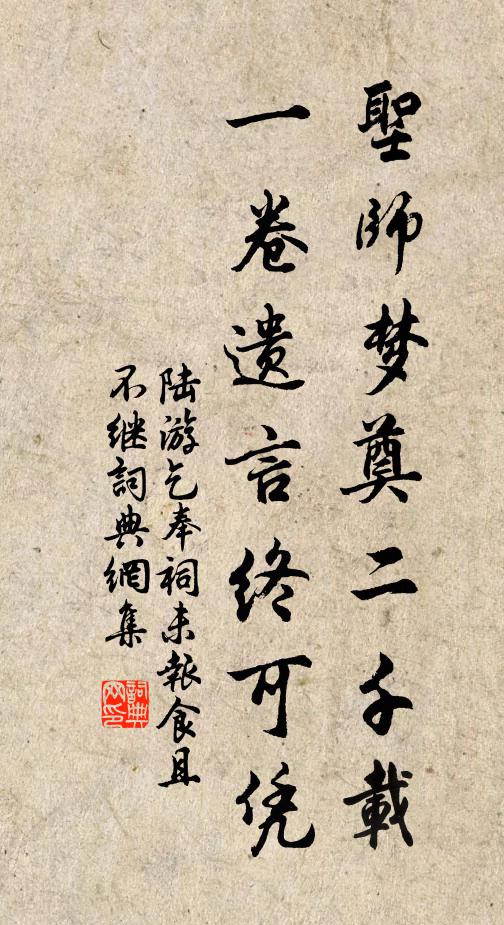 聖師梦奠二千載
一卷遗言终可凭
陆游乞奉祠未報食且
不继詞典網集
詞典网印